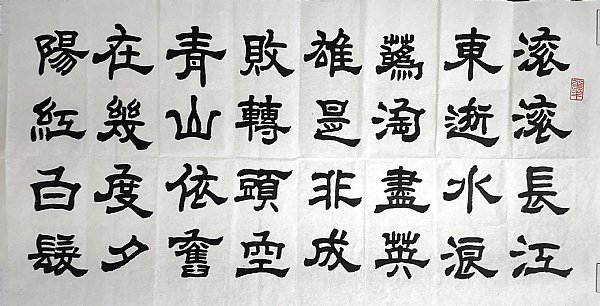 滚滚長江
東逝水浪
蘤淘盡英
雄是非成
敗轉頭空
青山依舊
在幾度夕
陽紅白髮